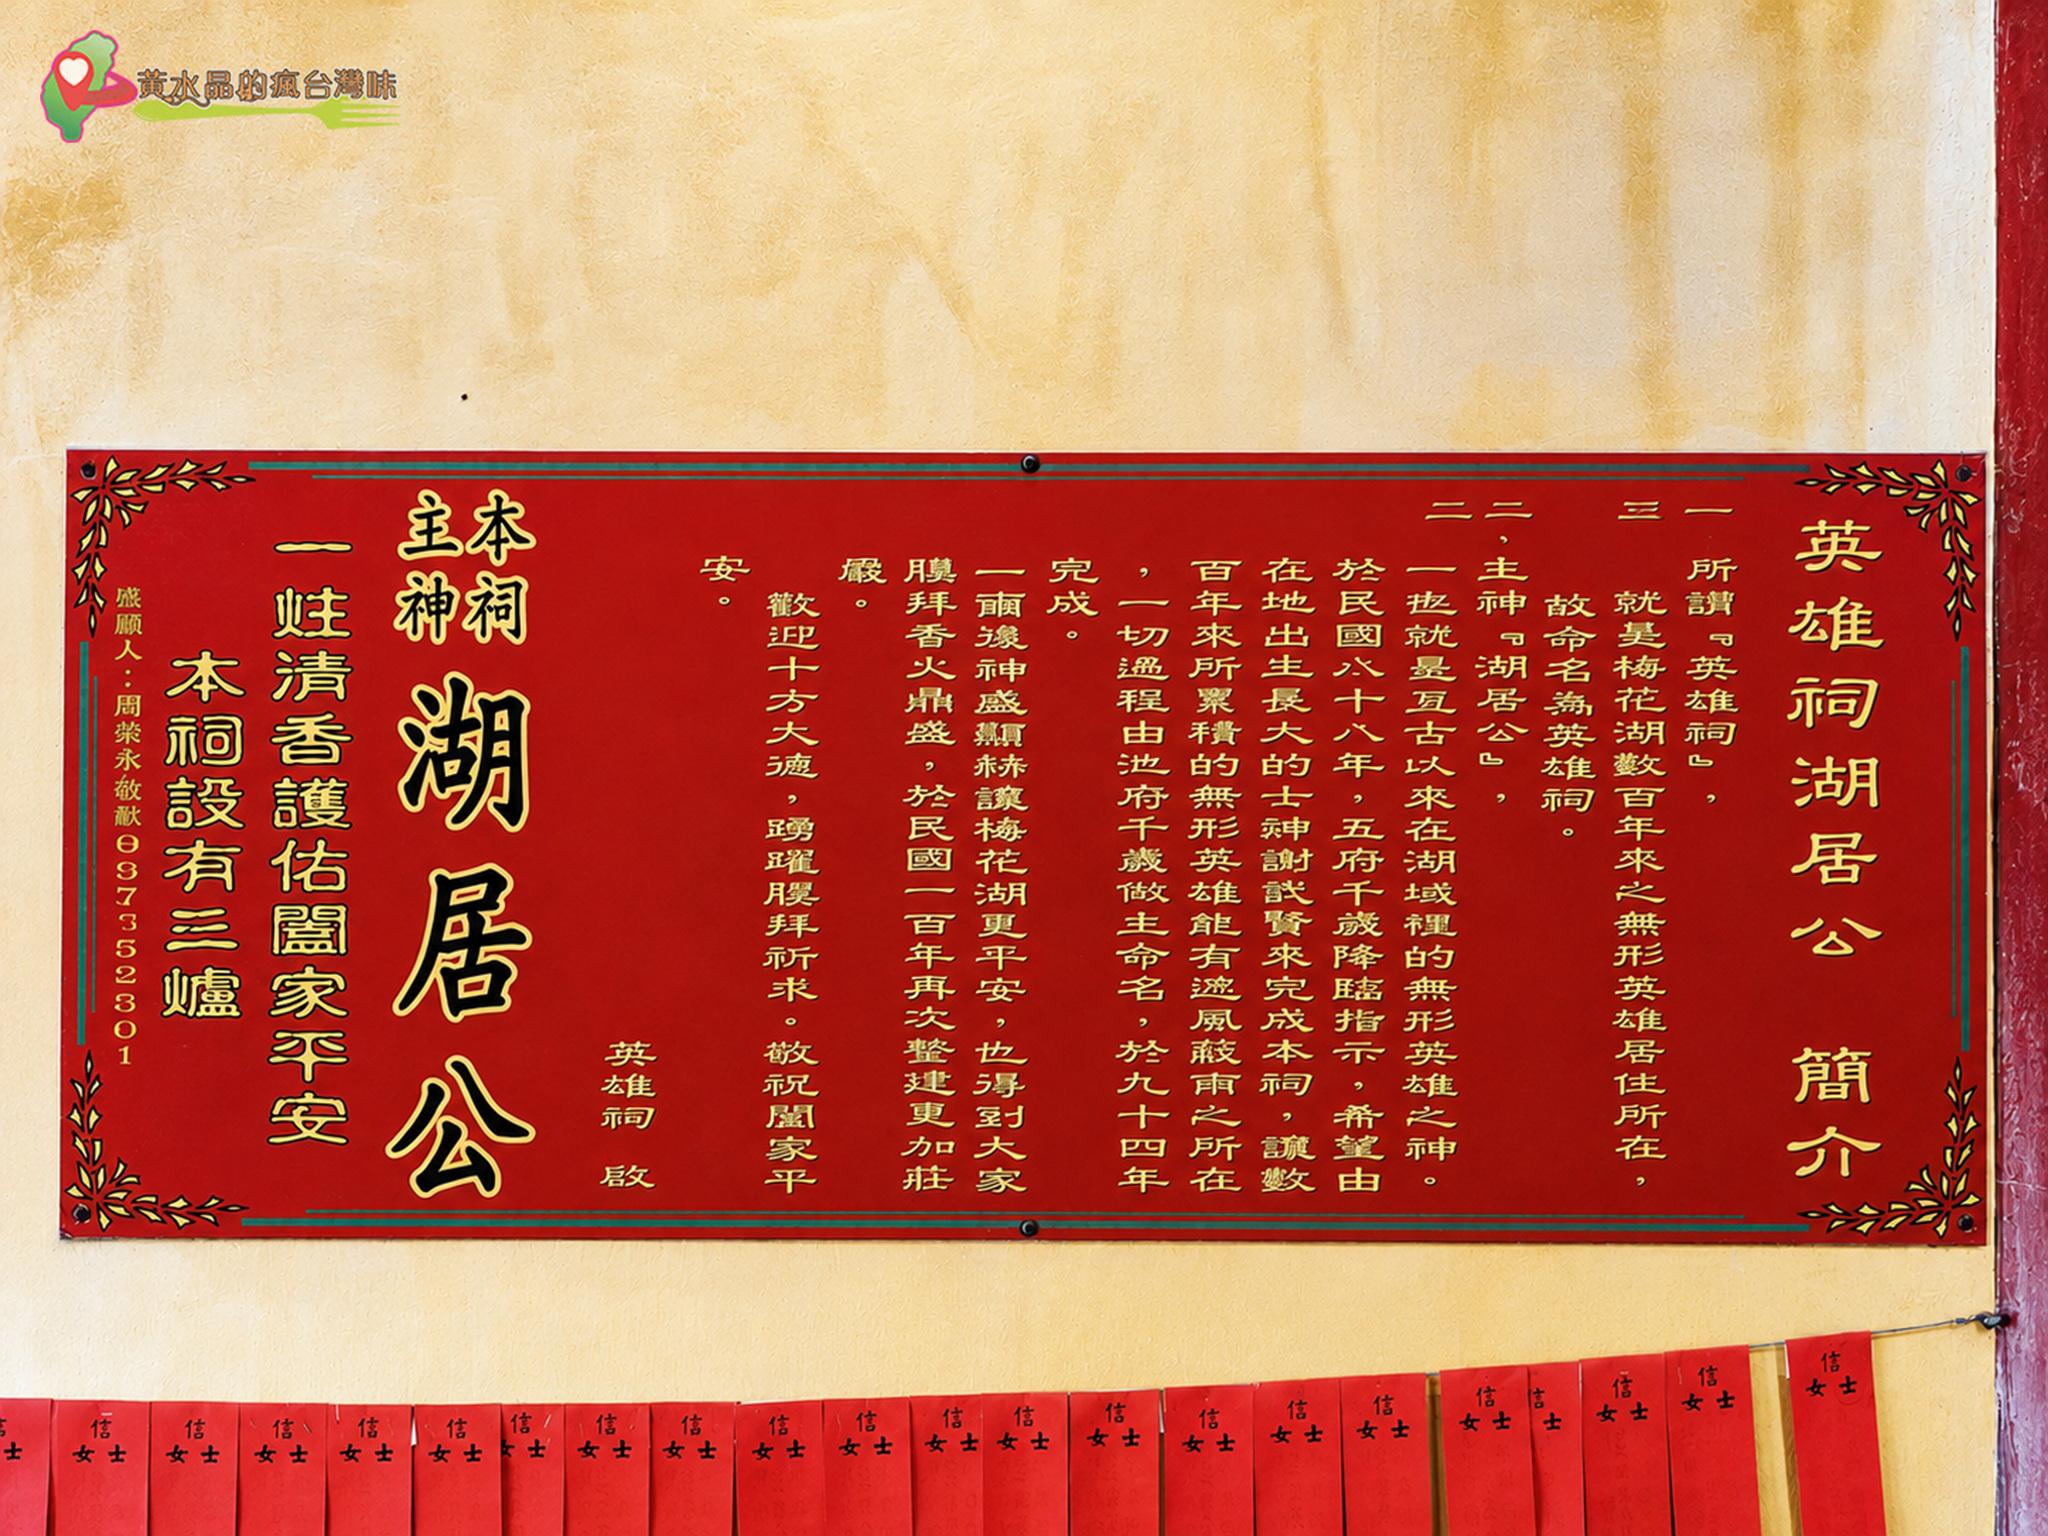 黃水晶的瘋台灣味
英雄祠湖居公 簡介
一 所謂『英雄祠』，
三 就是梅花湖數百年來之無形英雄居住所在，
故命名為英雄祠。
二，主神『湖居公』，
二 一也就是亙古以來在湖域裡的無形英雄之神。
於民國八十八年，五府千歲降臨指示，希望由
在地出生長大的士神謝試賢來完成本祠，讓數
百年來所累積的無形英雄能有遮風蔽雨之所在
，一切過程由池府千歲做主命名，於九十四年
完成。
一爾後神盛顯赫讓梅花湖更平安，也得到大家
膜拜香火鼎盛，於民國一百年再次整建更加莊
嚴。
歡迎十方大德，踴躍膜拜祈求。敬祝闔家平
安。
英雄祠 啟
本祠
主神
湖居公
一炷清香護佑闔家平安
本祠設有三爐
人：周榮永敬獻097352301
信
士
信
女士
信
女士
信
女士
信
女士
信
女士
信
女士
信
女士
信
女士
信
女士
信
女士
信
女士
信
女士
信
女士
信
女士
信
女士
信
女士
信
女士
信
士
信
女士
信
女士
信
女士